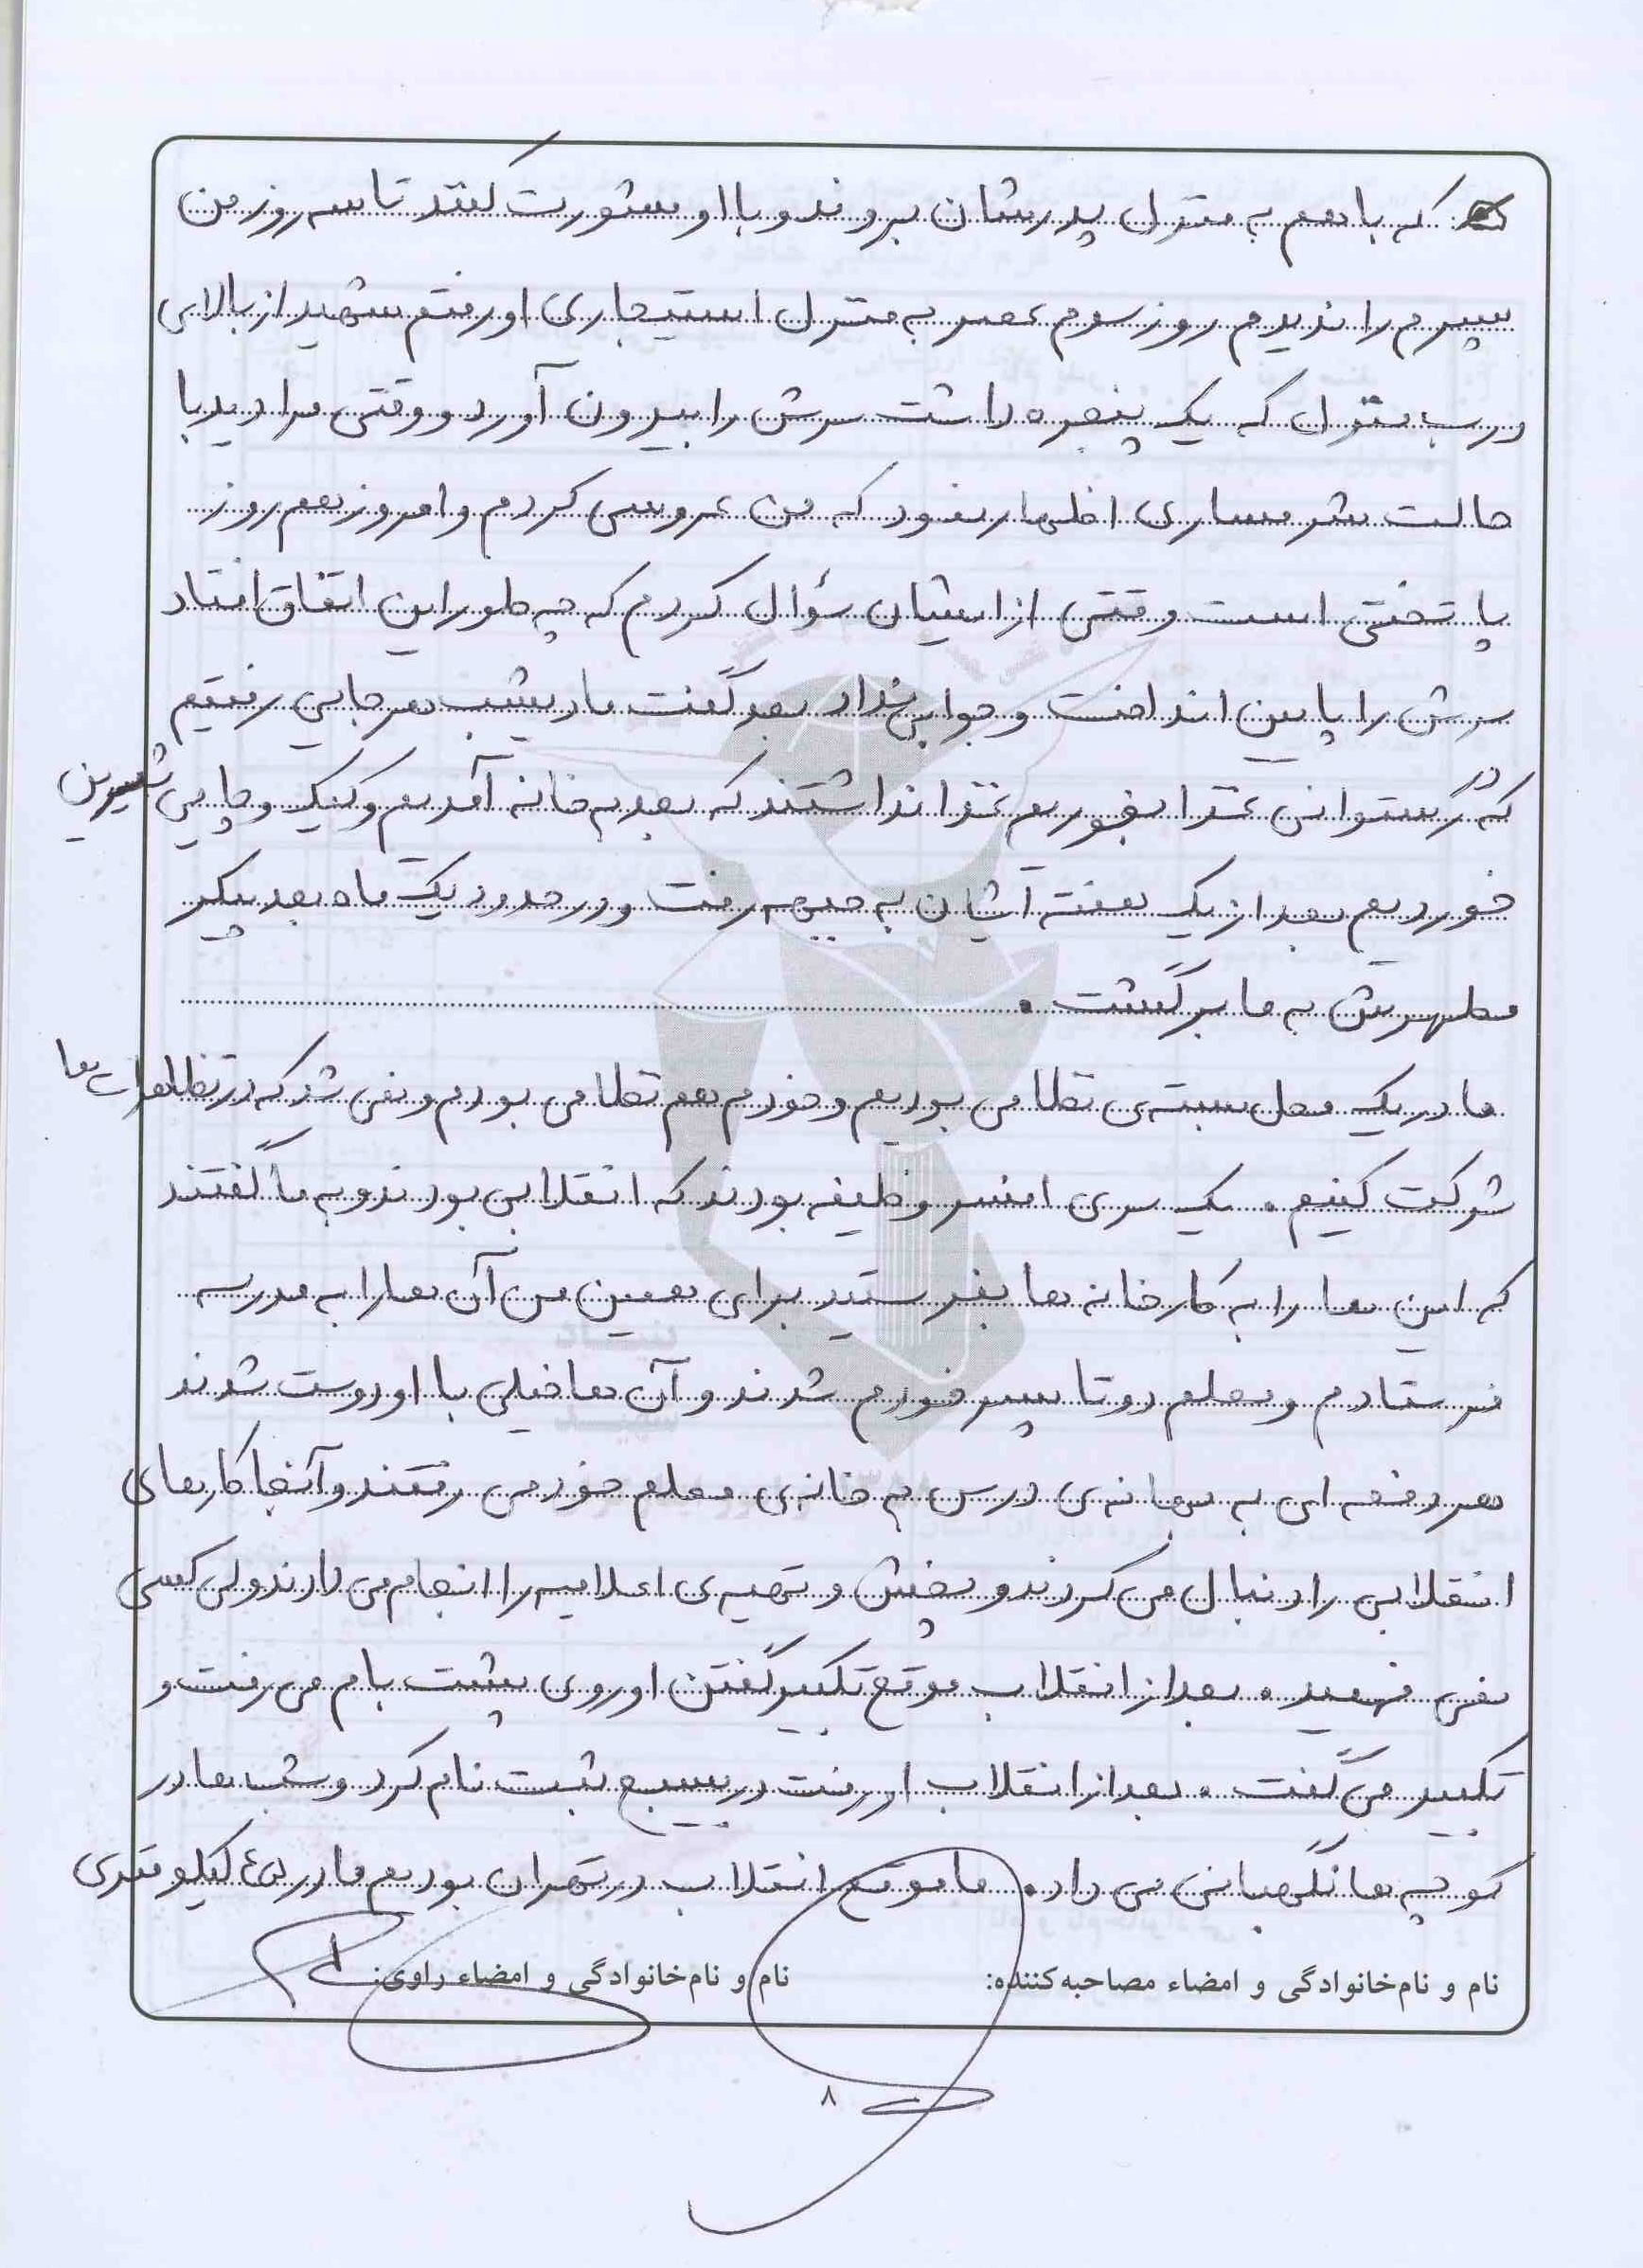 که با هم به منزل پدرشان بروند و با او مشورت کنند تا سه روز من
پسرم را ندیدم روز سوم عصر به منزل استیجاری او رفتم شهید از بالای
درب منزل که یک پنجره داشت سرش را بیرون آورد و وقتی مرا دید با
حالت شرمساری اظهار نمود که من عروسی کردم و امروز هم روز
پاتختی است وقتی از ایشان سؤال کردم که چه طور این اتفاق افتاد
سرش را پایین انداخت و جوابی نداد بعد گفت ما دیشب هر جایی رفتیم
که در رستوانی غذا بخوریم غذا نداشتند که بعد به خانه آمدیم و کیک و چایی شیرین
خوردیم بعد از یک هفته ایشان به جبهه رفت و در حدود یک ماه بعد پیکر
مطهرش به ما برگشت .
ما در یک محل بسته‌ی نظامی بودیم و خودم هم نظامی بودم و نمی شد که در تظاهرات ها
شرکت کنیم . یک سری افسر وظیفه بودند که انقلابی بودند و به ما گفتند
که این ها را به کارخانه ها بفرستید برای همین من آن ها را به مدرسه
فرستادم و معلم دو تا پسر خودم شدند و آن ها خیلی با او دوست شدند
هر دفعه ای به بهانه‌ی درس به خانه‌ی معلم خود می رفتند و آنجا کارهای
انقلابی را دنبال می کردند و پخش و تهیه‌ی اعلامیه را انجام می دادند ولی کسی
نمی فهمید . بعد از انقلاب موقع تکبیر گفتن او روی پشت بام می رفت و
تکبیر می گفت . بعد از انقلاب او رفت در بسیج ثبت نام کرد و شب ها در
کوچه ها نگهبانی می داد . ما موقع انقلاب در تهران بودیم ما در کیلومتری
نام و نام‌خانوادگی و امضاء مصاحبه‌کننده: نام و نام‌خانوادگی و امضاء راوی:
۸